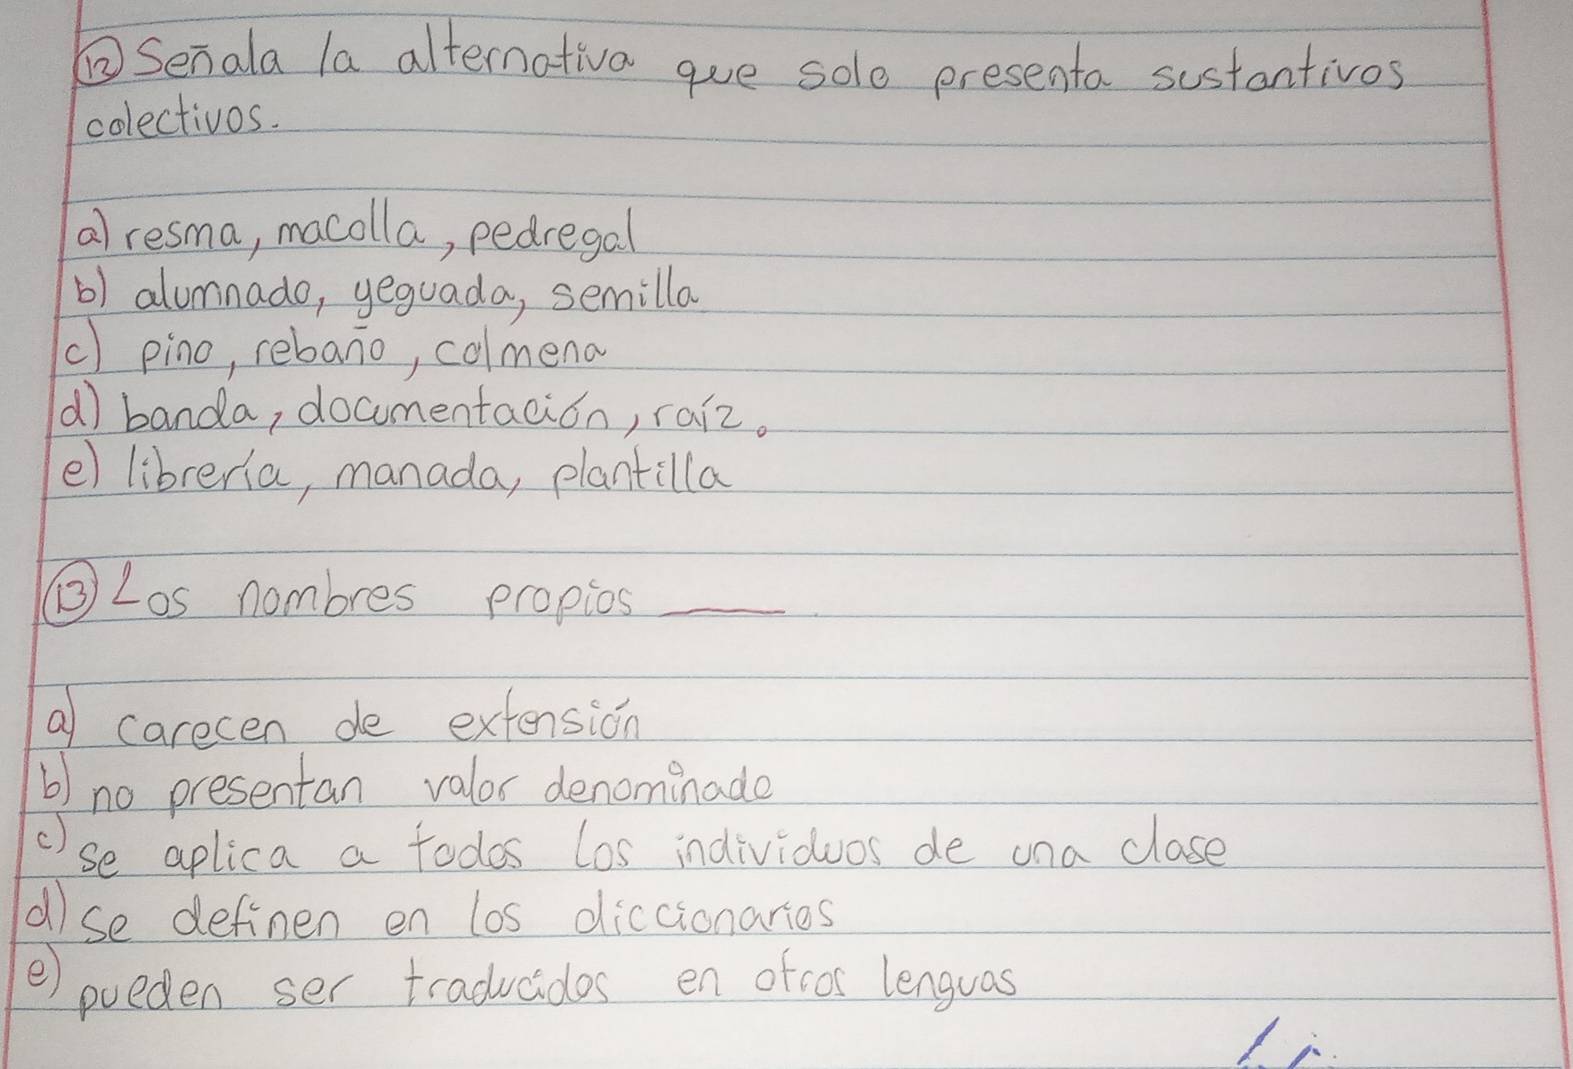 12 Señala la alternativa que solo presenta sustantivos
colectivos.
a) resma, macolla, pedregal
b) alumnado, yeguada, semilla
c) pino, rebaño, colmena
d) banda, documentación, raíz.
e) librería, manada, plantilla
13 Los nombres propios ____
a) carecen de extensión
b) no presentan valor denominado
c) se aplica a todos los individuos de una clase
d) se definen en los diccionarios
e) pueden ser traducidos en otros lenguas